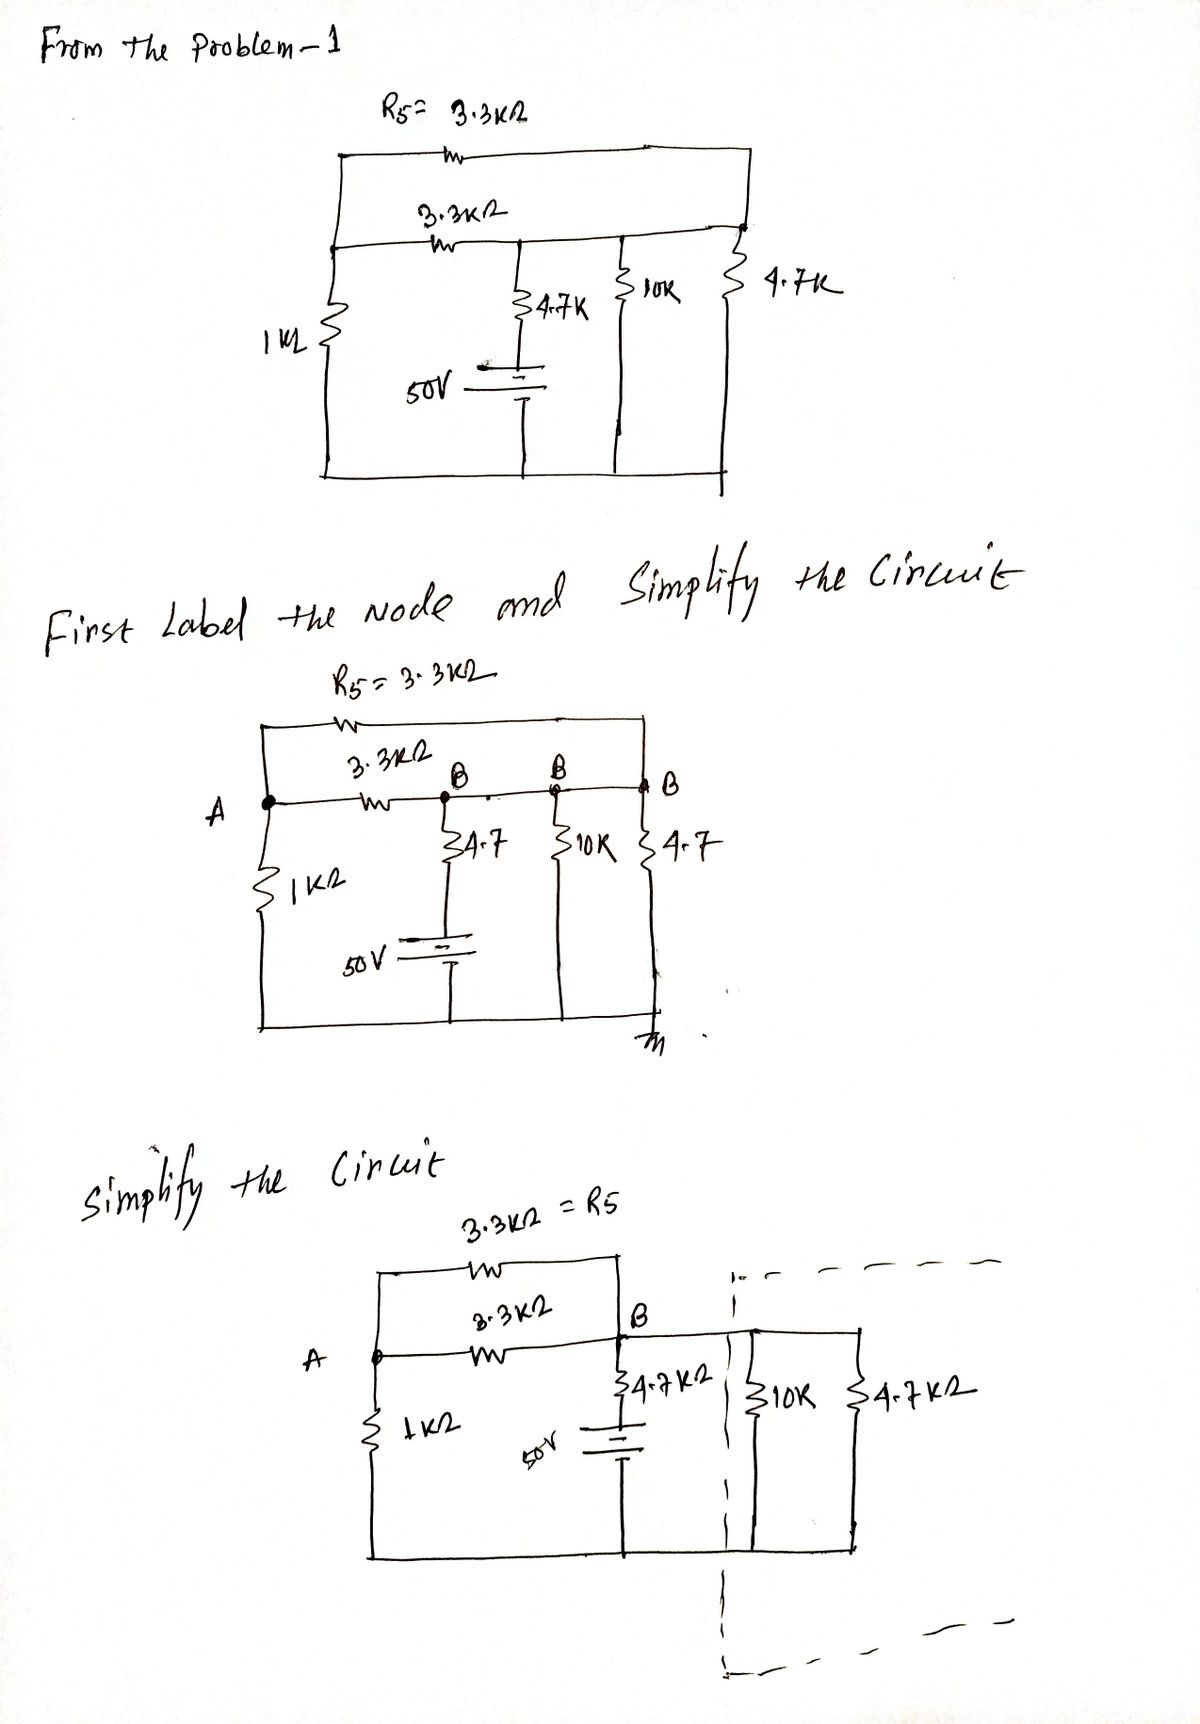 From the Problem-1
R5= 3.3KΩ
3.3KΩ
1KΩ
4.7K
10K
4.7K
50V
First Label the Node and Simplify the Circuit
R5= 3.3KΩ
3.3KΩ
B
B
B
A
4.7
10K
4.7
1KΩ
50V
Simplify the Circuit
3.3KΩ = R5
3.3KΩ
B
A
4.7KΩ
10K
4.7KΩ
1KΩ
50V